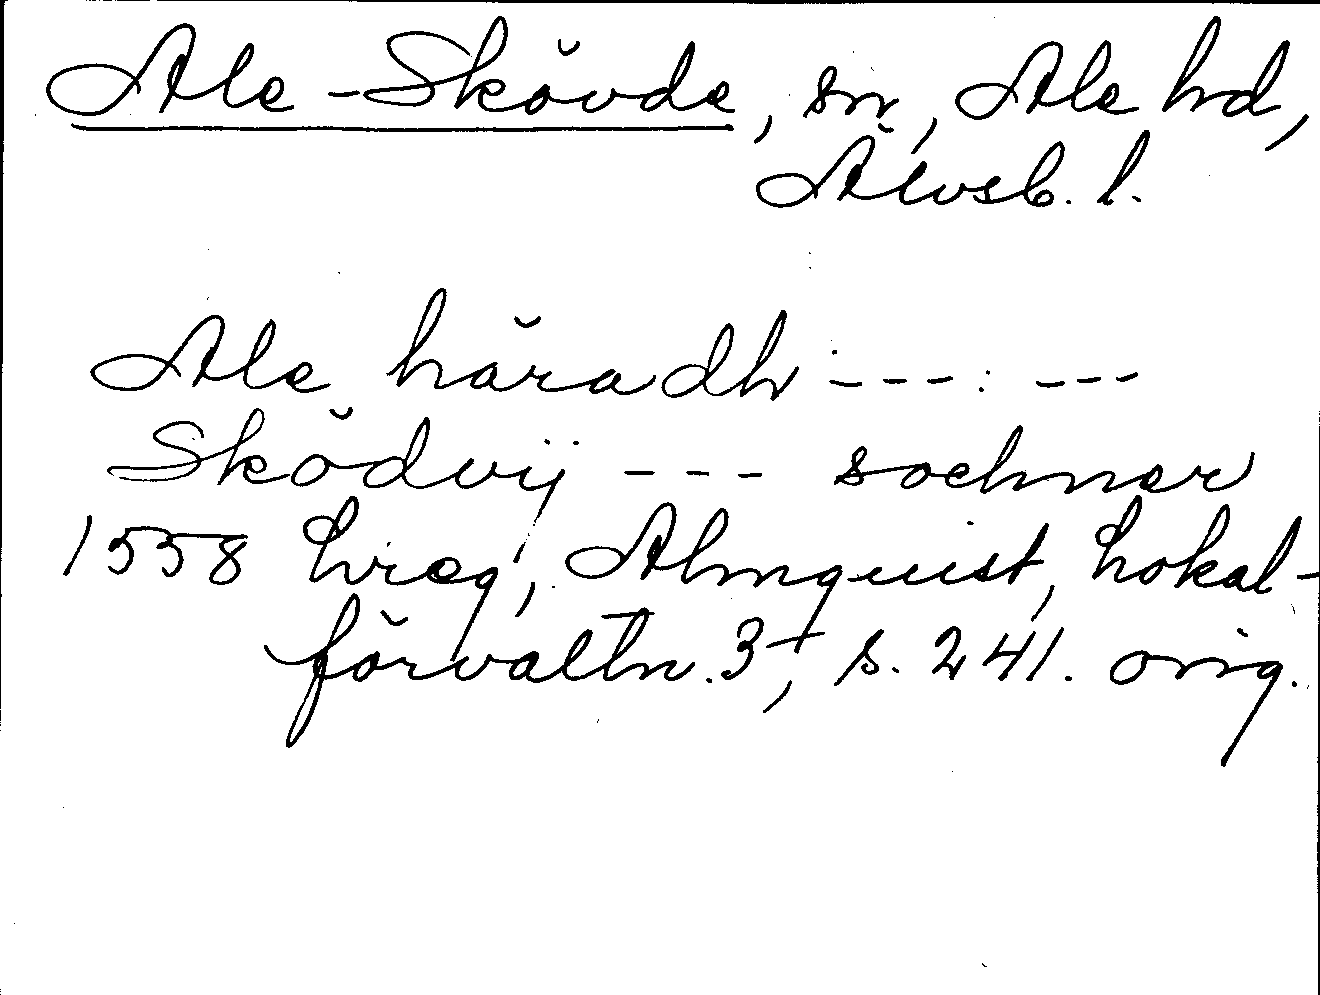 Ale-Skövde, sn, Ale hd,
Älvsb. l.
Ale häradh ---: ---
Sködvij --- sochner
1558 Lireg, Almquist, Lokal-
förvaltn. 3, s. 241. orig.